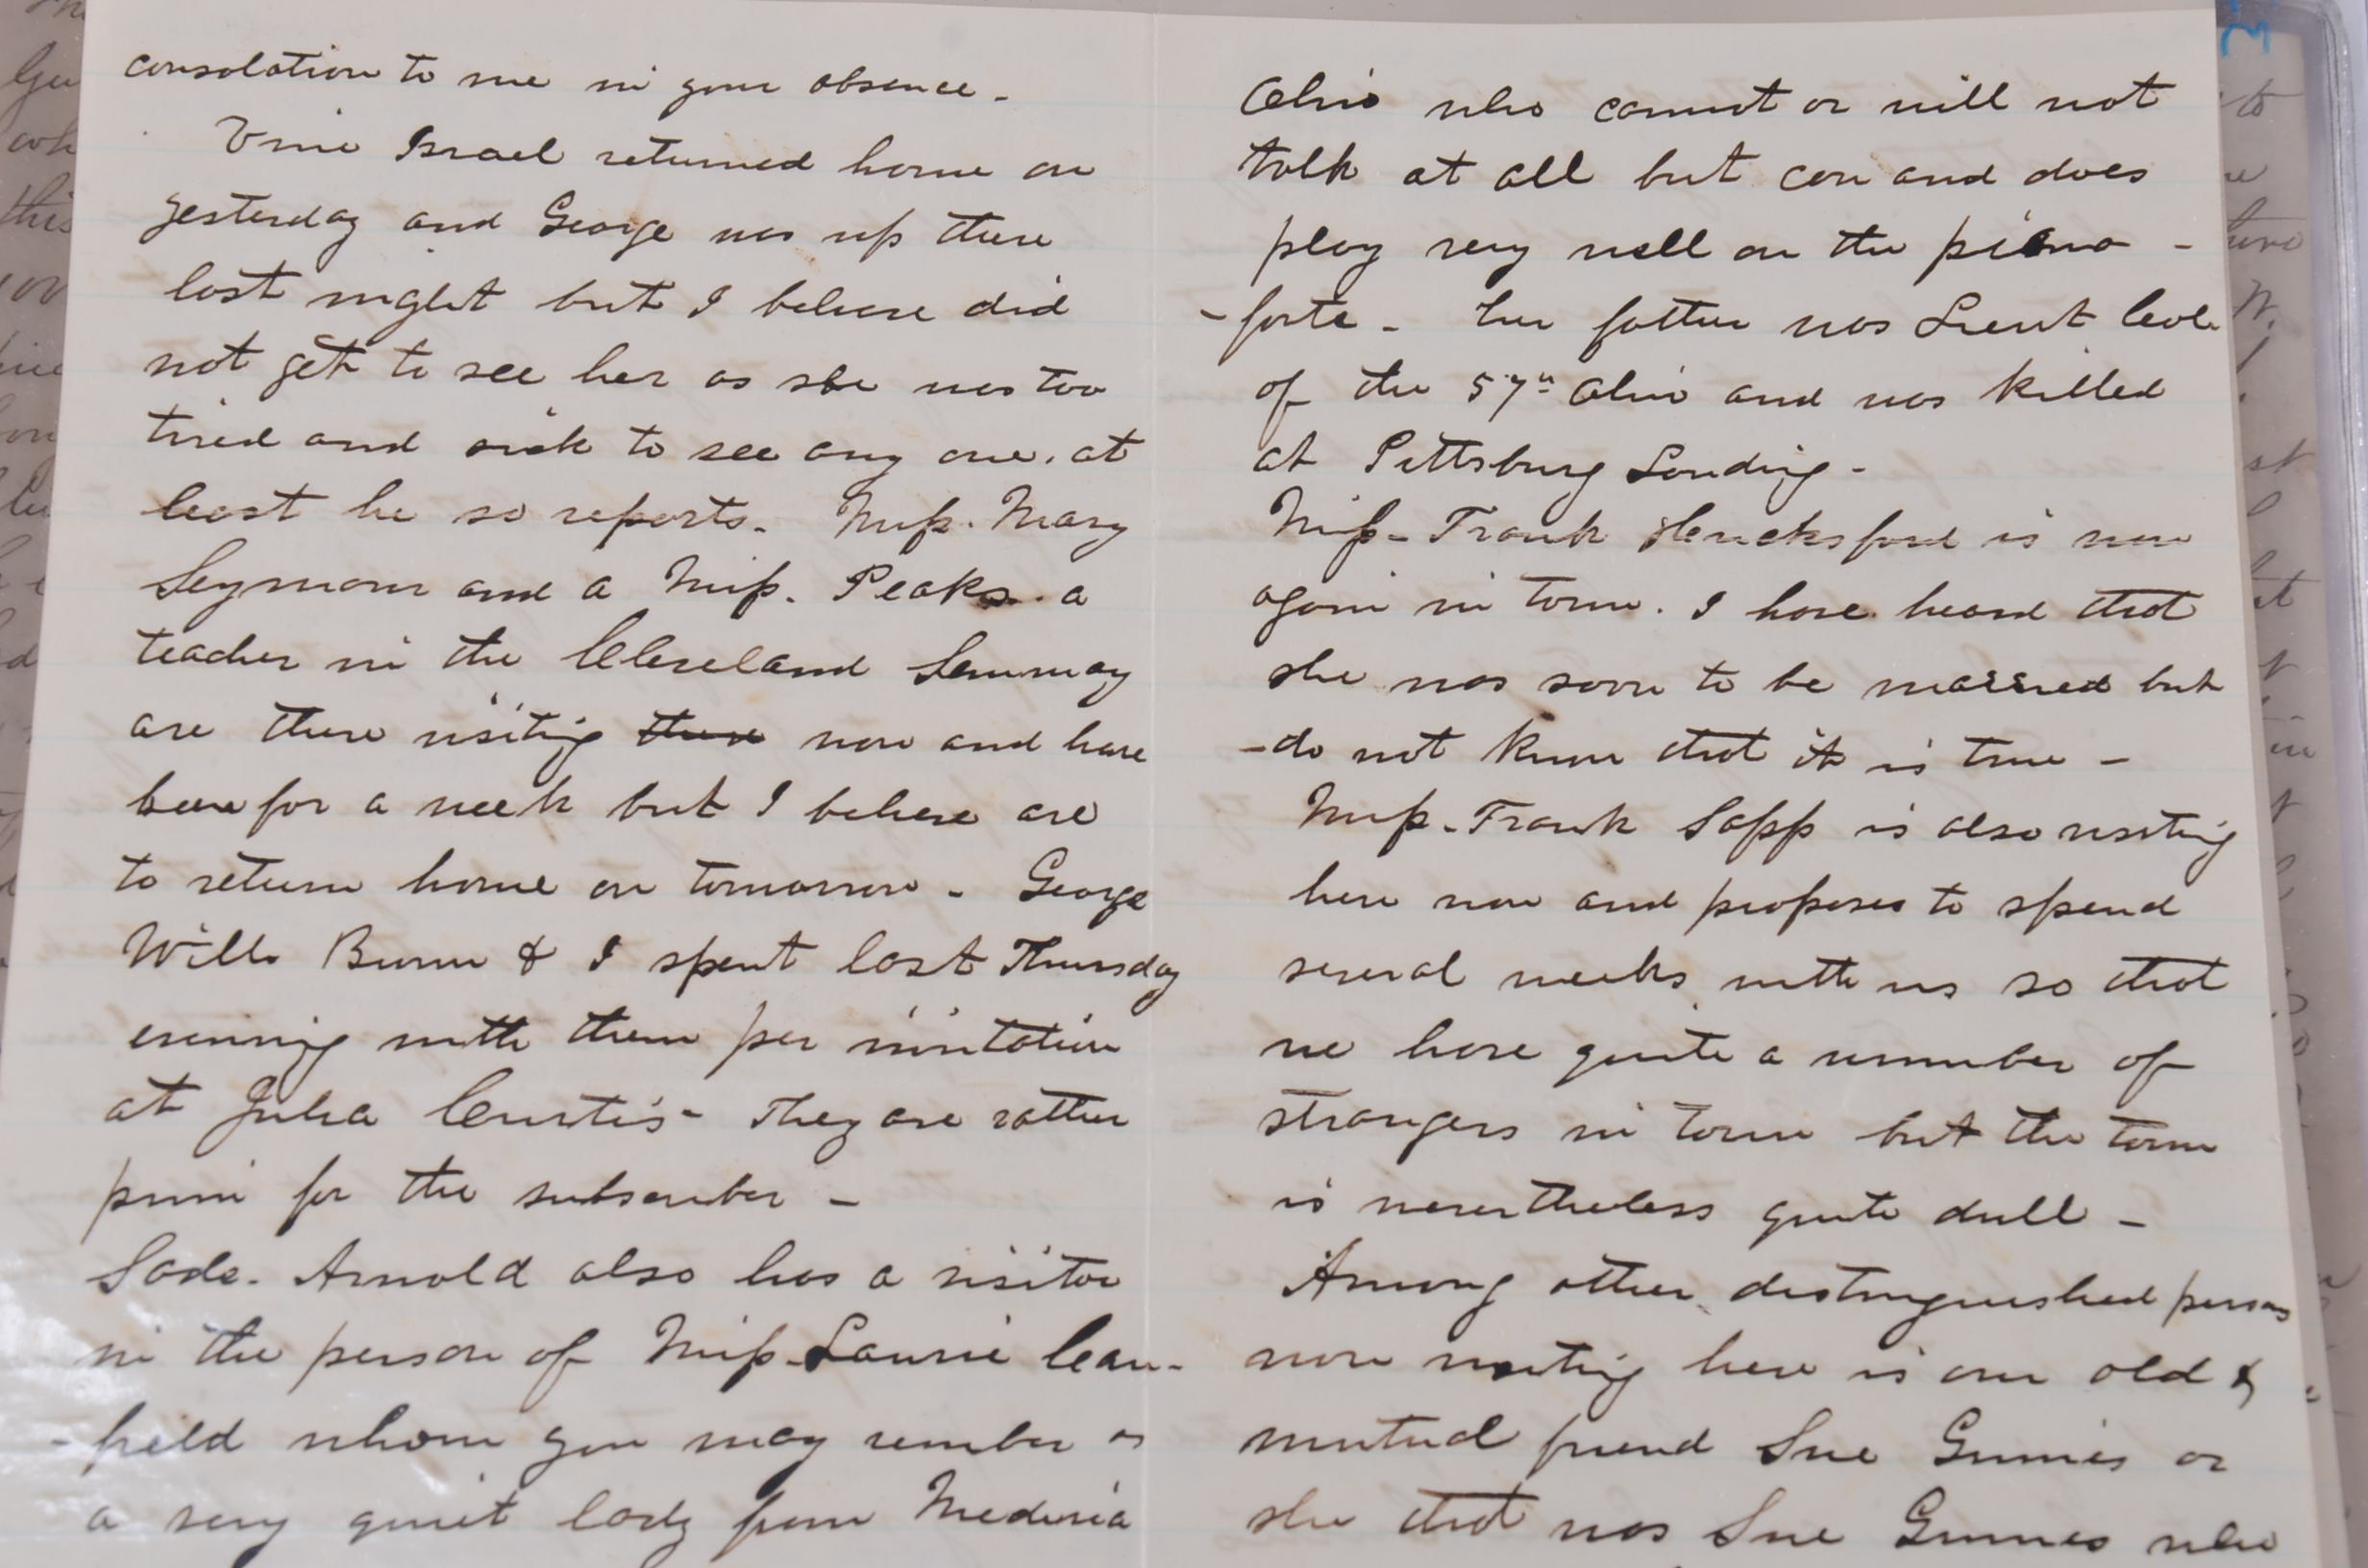 consolation to me in your absence -
Vine Israel returned home on
yesterday and George was up there
last night but I believe did
not get to see her as she was too
tired and sick to see any one, at
least he so reports - Miss. Mary
Seymour and a Miss. Peaks. a
teacher in the Cleveland Seminary
are there visiting there now and have
been for a week but I believe are
to return home on tomorrow - George
Wills Bunn & I spent last Thursday
evening with them per invitation
at Julia Curtis - They are rather
prim for the subscriber -
Sade. Arnold also has a visitor
in the person of Miss Laurie Can-
-field whom you may rember as
a very quiet lady from Medina
Ohio who cannot or will not
talk at all but can and does
play very well on the piano -
- forte - her father was Lieut Col.
of the 57" Ohio and was killed
at Pittsburg Landing -
Miss - Frank is now
again in town. I have heard that
she was soon to be married but
- do not know that it is true -
Miss - Frank Sapp is also visiting
here now and proposes to spend
several weeks with us so that
we have quite a number of
strangers in town but the town
is nevertheless quite dull -
Among other distinguished persons
now visiting here is our old &
mutual friend Sue Grimes or
she that was Sue Grimes who